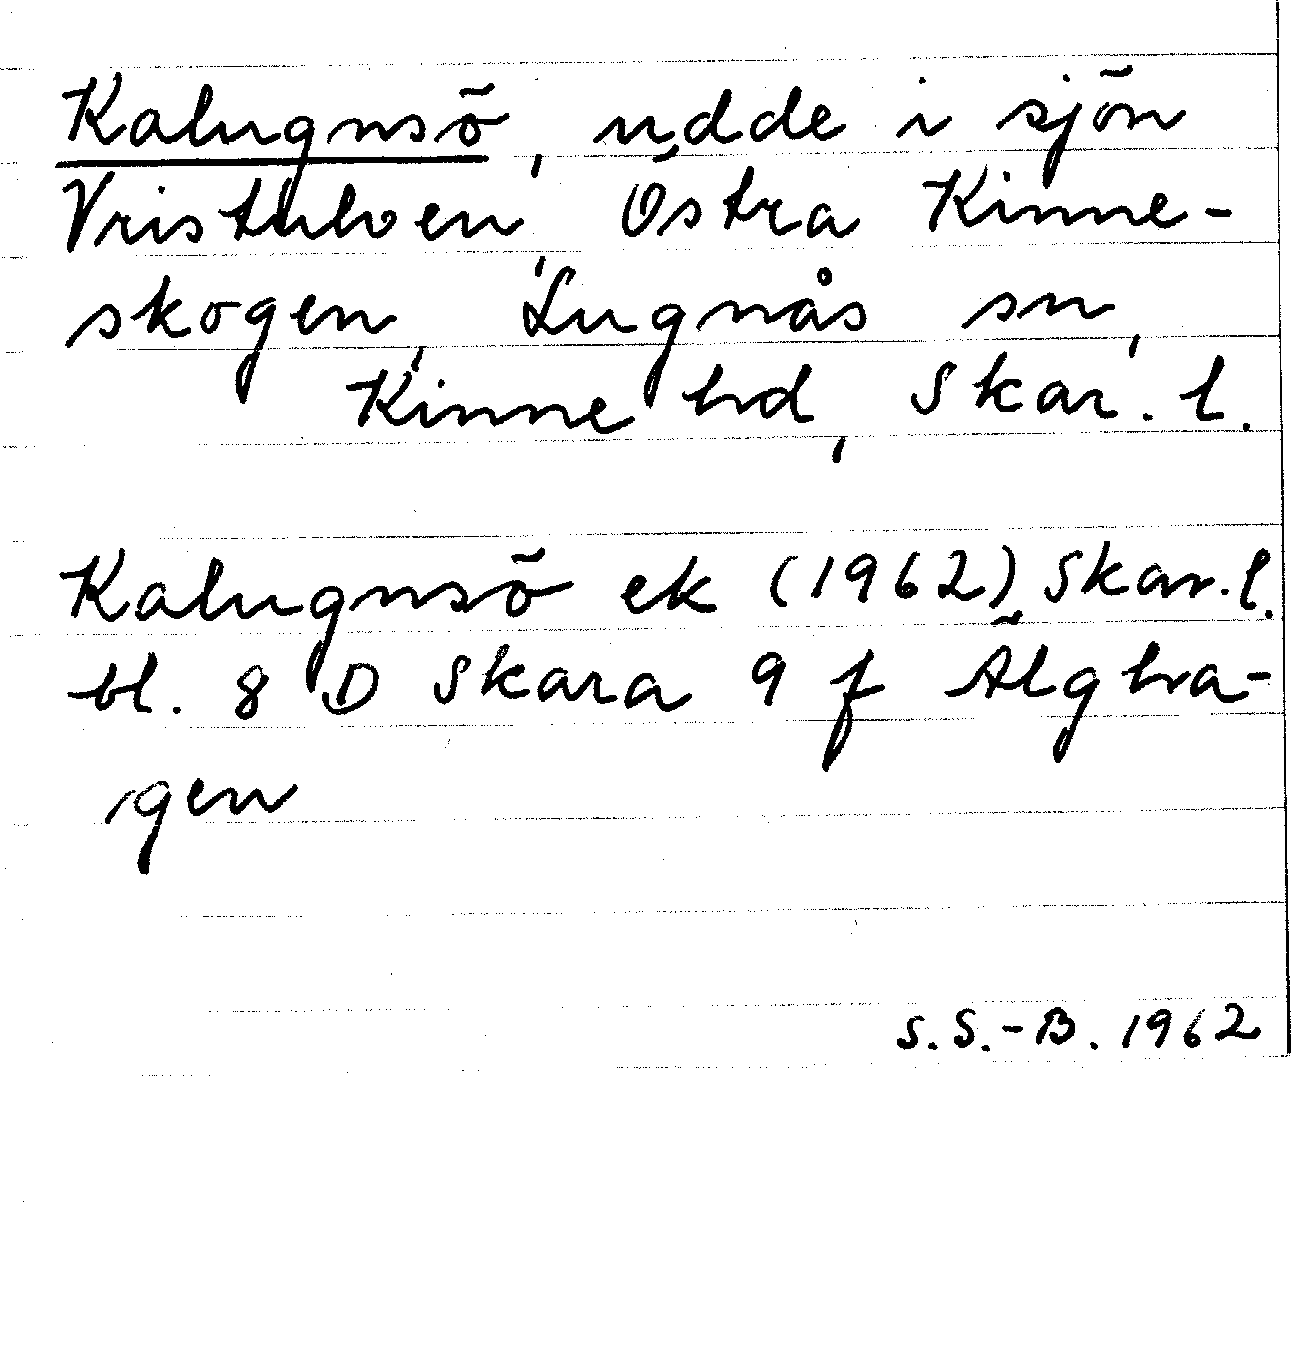 Kalugnsö, udde i sjön
Vristulven, Östra Kinne-
skogen, Lugnås sn,
Kinne hd, Skar. l.
Kalugnsö ek (1962) Skar. l.
bl. 8 D Skara 9 f Älgha-
gen
S. S.-B. 1962